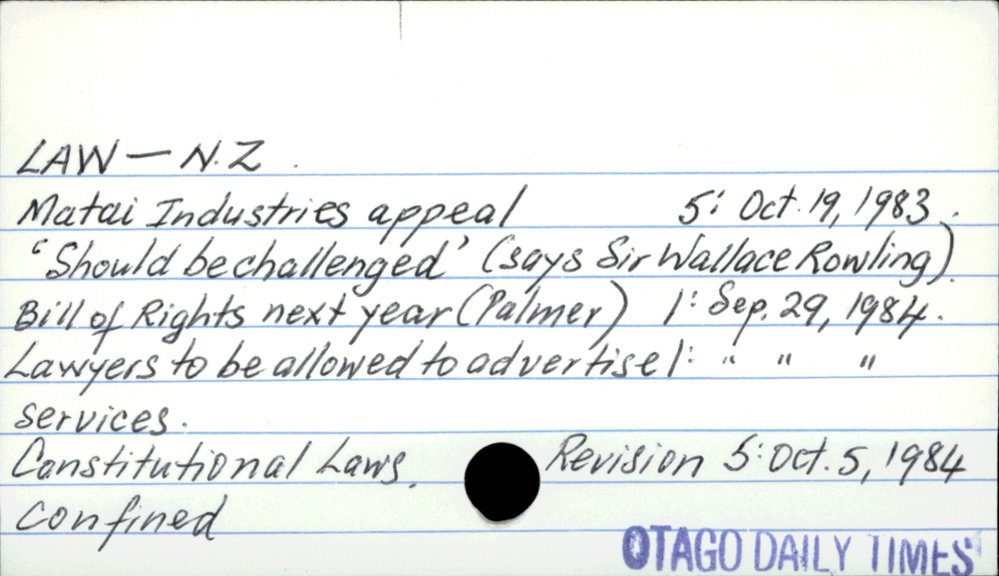 LAW — N.Z.
Matai Industries appeal 5: Oct. 19, 1983.
'Should be challenged' (says Sir Wallace Rowling)
Bill of Rights next year (Palmer) 1: Sep. 29, 1984.
Lawyers to be allowed to advertise 1: " " "
services.
Constitutional Laws. Revision 5: Oct. 5, 1984
confined
OTAGO DAILY TIMES